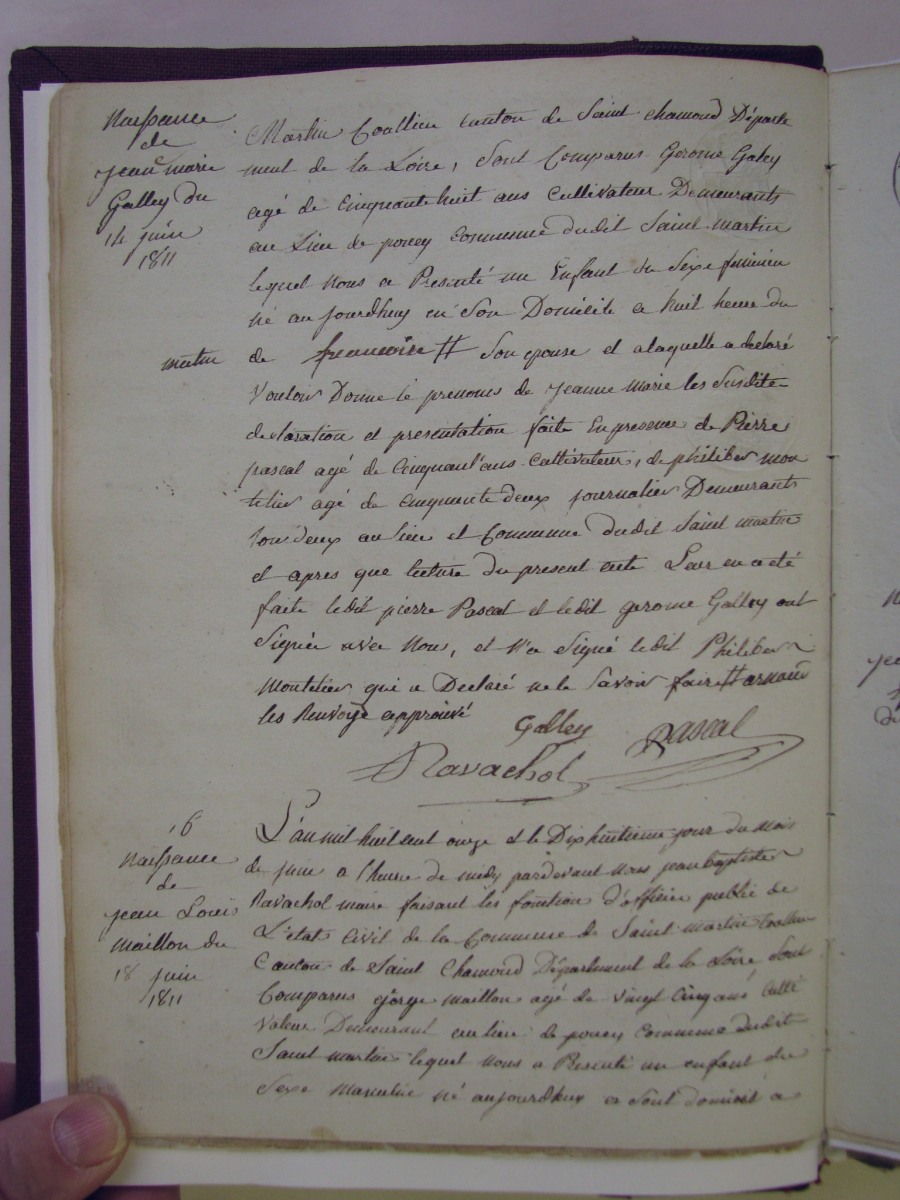 Naissance
de
Jean marie
Galley du
14 juin
1811
Martin Coallieu canton de Saint chamond Départe
ment de la Loire, Sont Comparus Gerome Galey
agé de Cinquante huit ans Cultivateur Demeurants
au Lieu de poncy Commune dudit Saint martin
lequel nous a Presenté un Enfant du Sexe feminien
né aujourdhuy en Son Domicile a huit heure du
matin de francoise # Son epouse et a laquelle a declaré
Vouloir Donne le prenoms de jeanne Marie les Susdite
declaration et presentation faite En presence de Pierre
pascal agé de Cinquant'ans Cultivateur, de philiber mon
telier agé de cinquante deux journalier Demeurants
tous deux au lieu et Commune dudit Saint martin
et apres que lecture du present acte Leur en a eté
faite ledit pierre Pascal et ledit gerome Galley ont
Signée avec Nous, et N'a Signé ledit Philiber
Montelier qui a Declaré ne le Savoir faire # arnaud
les Renvoye approuvé
Galley Pascal
Ravachol
16
Naissance
de
jean Louis
Maillon du
18 juin
1811
L'an mil huit cent onze et le Dix huitieme jour du mois
de juin a l'heure de midy pardevant Nous jean baptiste
Ravachol maire faisant les fonction d'officier public de
L'etat Civil de la Commune de Saint martin Coallieu
Canton de Saint Chamond Département de la Loire Sont
Comparus gorge maillon agé de vingt Cinq ans Culti
vateur Demeurant au lieu de poncy Commune dudit
Saint martin lequel nous a Presenté un enfant du
Sexe Masculin né aujourdhuy a Sont domicil a